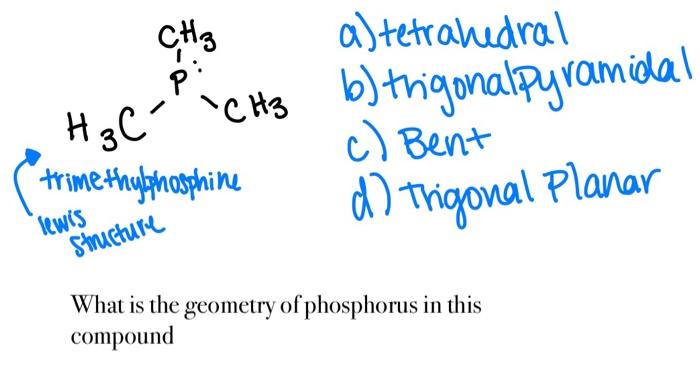 CH3
P:
H3C CH3
trimethylphosphine
lewis
structure
a) tetrahedral
b) trigonal pyramidal
c) Bent
d) Trigonal Planar
What is the geometry of phosphorus in this
compound